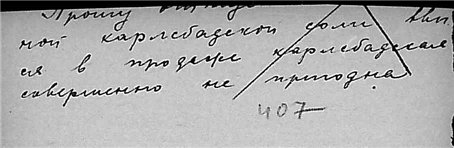 Прошу
ной карлсбадской соли
ся в продаже карлсбадская
совершенно не пригодна
407